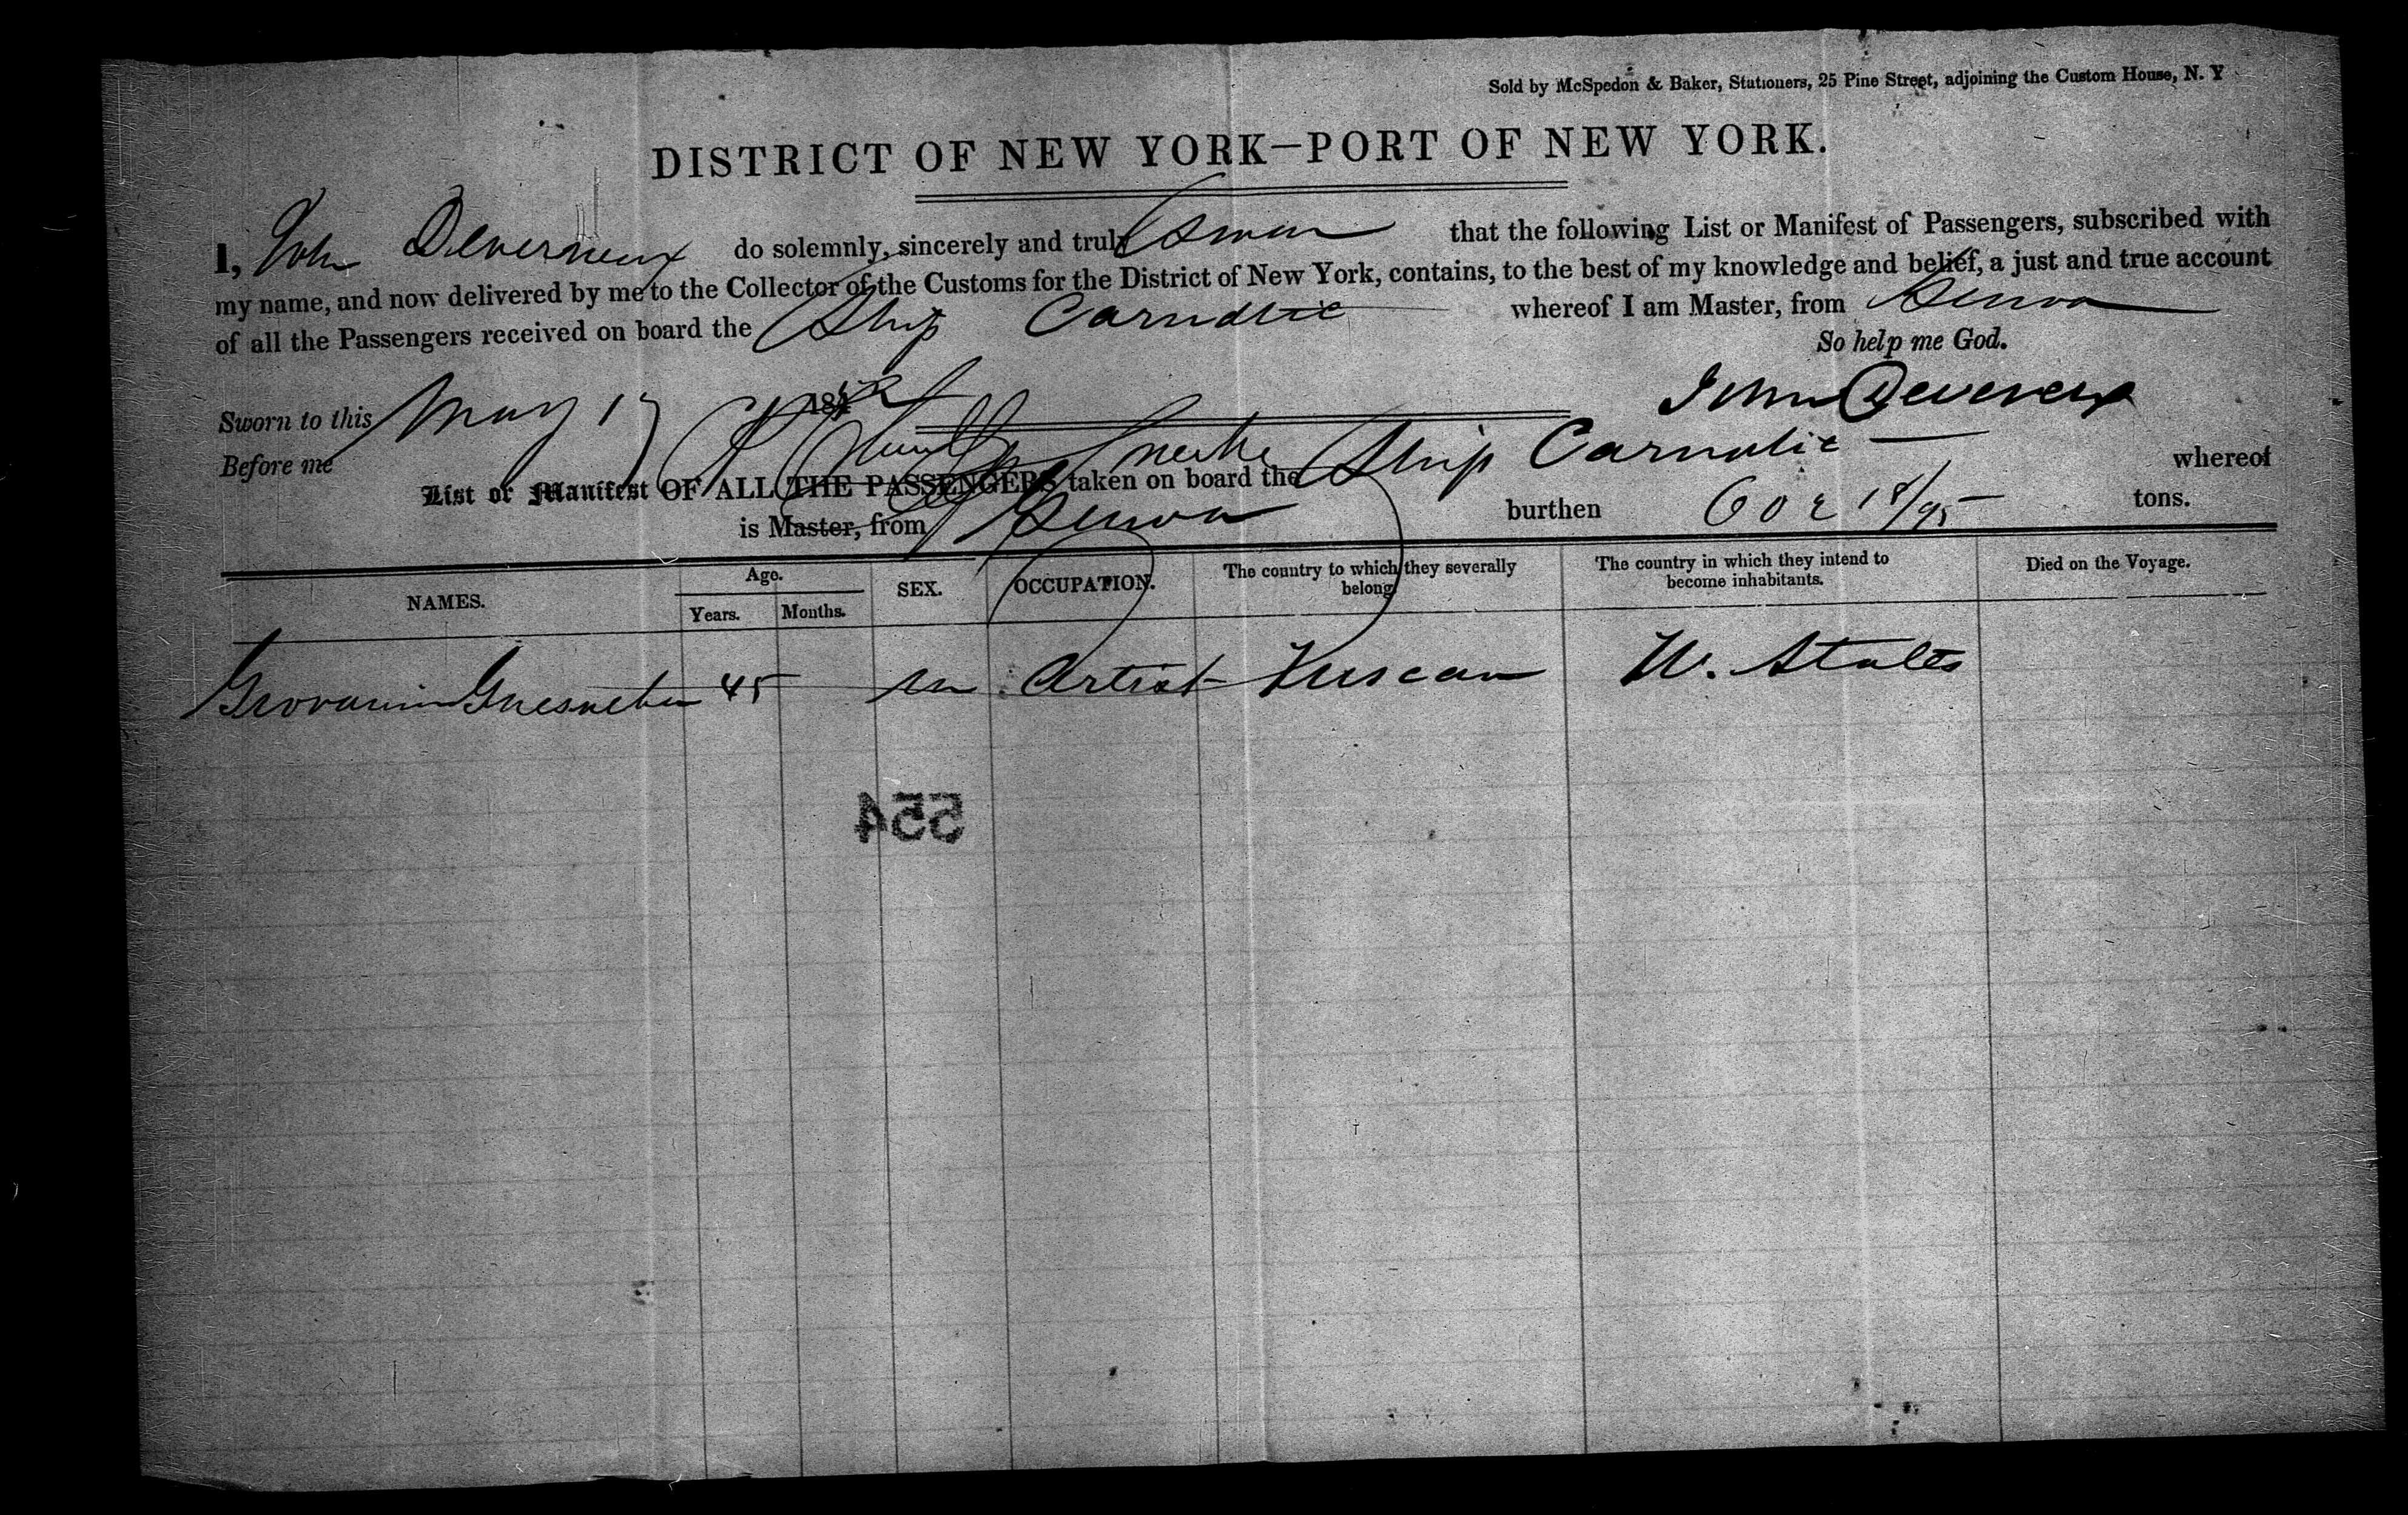 Sold by McSpedon & Baker, Stationers, 25 Pine Street, adjoining the Custom House, N. Y
DISTRICT OF NEW YORK—PORT OF NEW YORK.
I, John Devereux do solemnly, sincerely and truly Swear that the following List or Manifest of Passengers, subscribed with
my name, and now delivered by me to the Collector of the Customs for the District of New York, contains, to the best of my knowledge and belief, a just and true account
of all the Passengers received on board the Ship Carnatic whereof I am Master, from Genoa
So help me God.
Sworn to this May 17 184 John Devereux
Before me
List or Manifest OF ALL THE PASSENGERS taken on board the Ship Carnatic whereof
is Master, from Genoa burthen 602 18/95 tons.
NAMES. Age. Years. Months. SEX. OCCUPATION. The country to which they severally belong. The country in which they intend to become inhabitants. Died on the Voyage.
Giovanni 45 m Artist Tuscan U. States
554